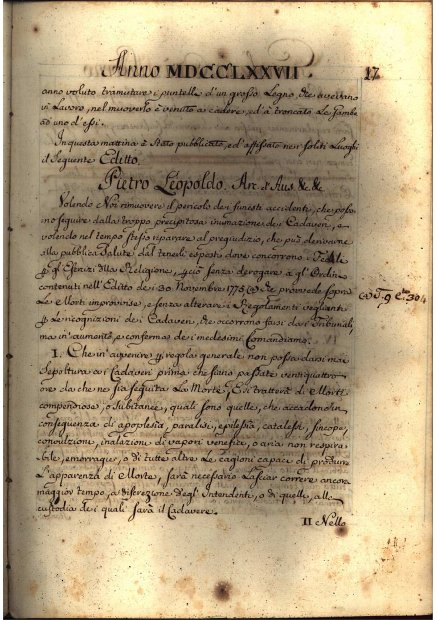 Anno MDCCLXXVII
17
anno voluto tramutare i puntelli d'un grosso Legno, che avevano
in Lavoro, nel muoverlo è venuto a cadere, ed à troncato le Gambe
ad uno d'essi.
In questa mattina è stato pubblicato, ed affissato nei soliti Luoghi
il seguente Editto.
Pietro Leopoldo. Arc. d'Aus. &. &.
Volendo Noi rimuovere il pericolo dei funesti accidenti, che posso
no seguire dalla troppo precipitosa inumazione dei Cadaveri, e
volendo nel tempo stesso riparare al pregiudizio, che può derivarne
alla pubblica Salute dal tenerli esposti dove concorrono i Fedeli
p gl'Esercizi della Religione, e ciò senza derogare a gl'Ordini
contenuti nell'Editto dei 30 Novembre 1775 che provvede sopra
le Morti improvvise, e senza alterare i Regolamenti veglianti
p le recognizioni dei Cadaveri, che occorrono farsi dai Tribunali,
ma in aumento, e conferma dei medesimi Comandiamo.
T. 9 304
I. Che in avvenire p regola generale non possa darsi mai
sepoltura ai Cadaveri prima che siano passate ventiquattro
ore da che ne sia seguita la Morte, e si tratterà di Morti
compendiose, o subitanee, quali sono quelle, che accadono in
conseguenza di apoplesia, paralisi, epilessia, catalessi, sincope,
convulsione, inalazion di vapori venefici, o aria non respira
bile, emorragie, o di tutte altre le cagioni capaci di produrre
l'apparenza di Morte, sarà necessario lasciar correre ancora
maggior tempo, a discrezione degl'Intendenti, o di quelli, alla
custodia dei quali sarà il Cadavere.
II Nello